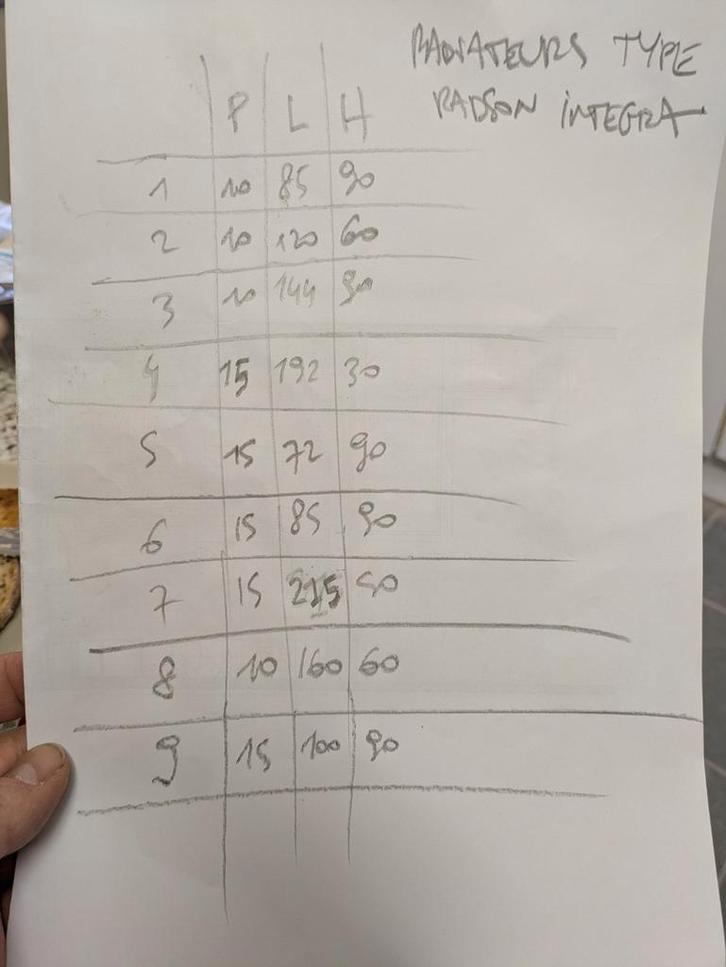 RADIATEURS TYPE
RADSON INTEGRA
P L H
1 10 85 90
2 10 120 60
3 10 144 90
4 15 192 30
5 15 72 90
6 15 85 90
7 15 215 50
8 10 160 60
9 15 100 90